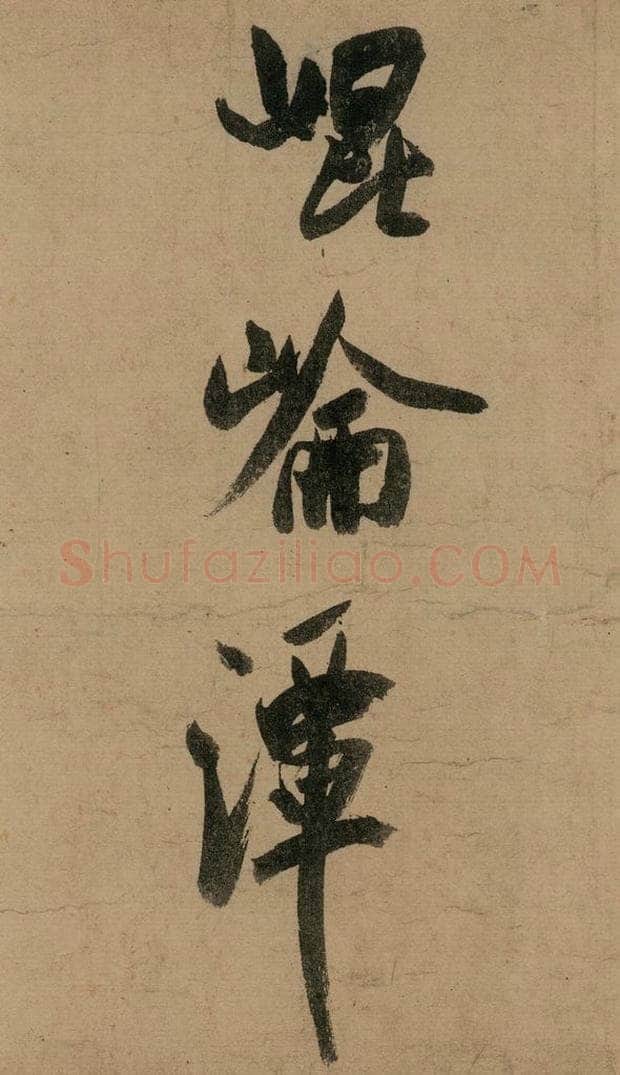 崐
崘
潭
Shufaziliao.COM